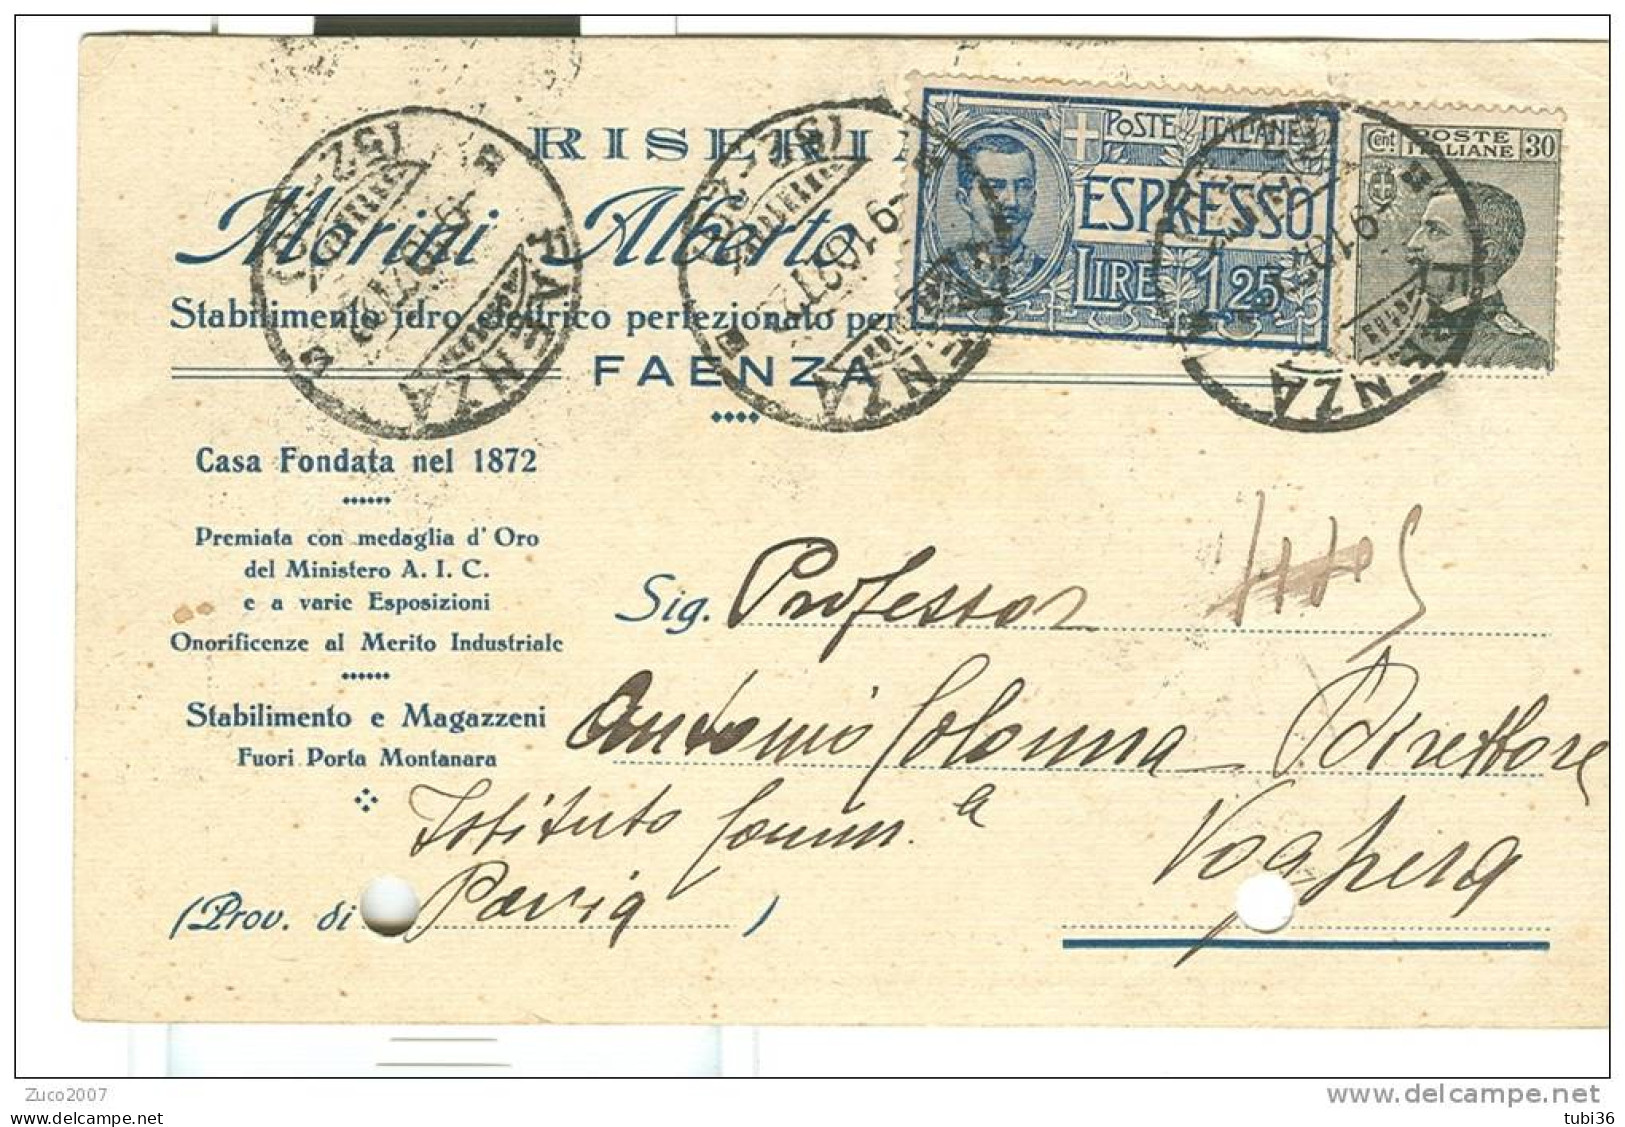 RISERIA
Morini Alberto
Stabilimento idro elettrico perfezionato per
FAENZA
POSTE ITALIANE
ESPRESSO
LIRE 1,25
Cent POSTE ITALIANE 30
FAENZA
FAENZA
FAENZA
Casa Fondata nel 1872
Premiata con medaglia d' Oro
del Ministero A. I. C.
e a varie Esposizioni
Onorificenze al Merito Industriale
Stabilimento e Magazzeni
Fuori Porta Montanara
Sig. Professor
Antonio Colonna Direttore
Istituto Comm.le
Voghera
(Prov. di Pavia )
Zuco2007
delcampe.net
tubi36